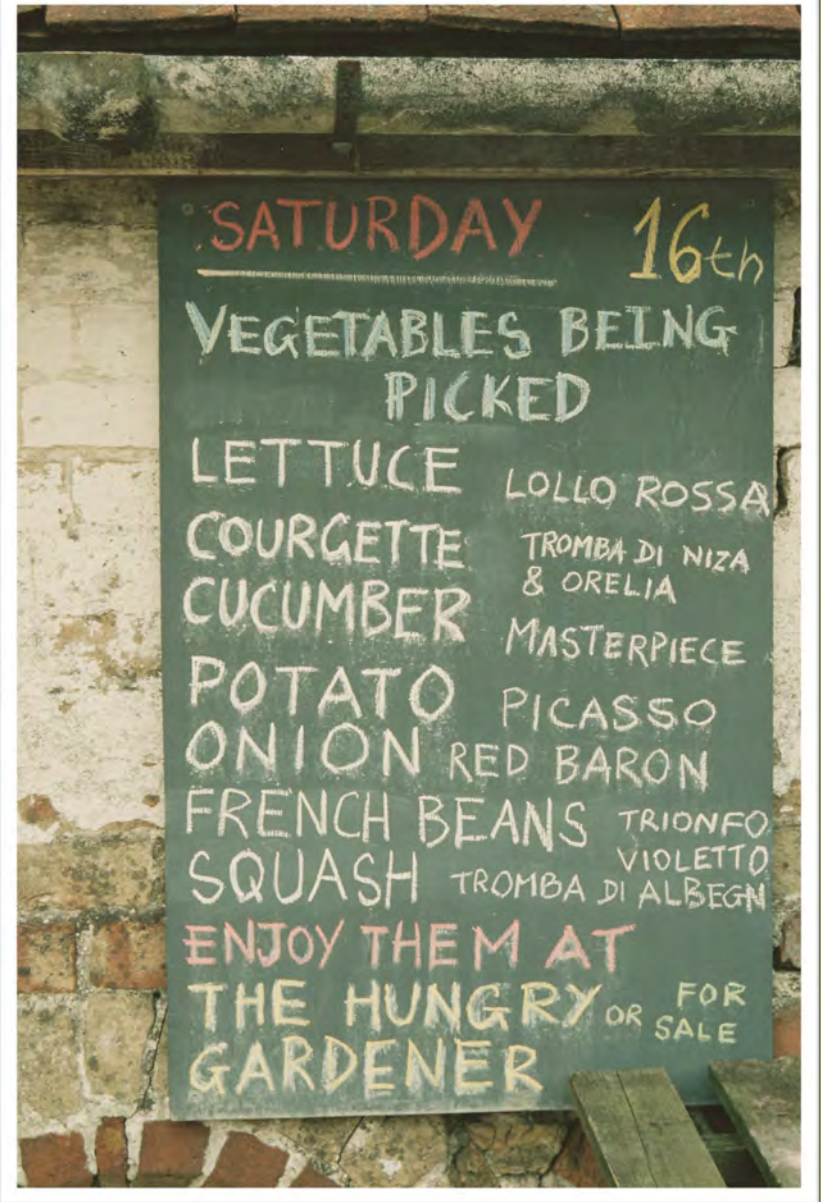 SATURDAY 16th
VEGETABLES BEING
PICKED
LETTUCE LOLLO ROSSA
COURGETTE TROMBA DI NIZA
& ORELIA
CUCUMBER MASTERPIECE
POTATO PICASSO
ONION RED BARON
FRENCH BEANS TRIONFO
VIOLETTO
SQUASH TROMBA DI ALBEGN
ENJOY THEM AT
THE HUNGRY OR FOR
SALE
GARDENER